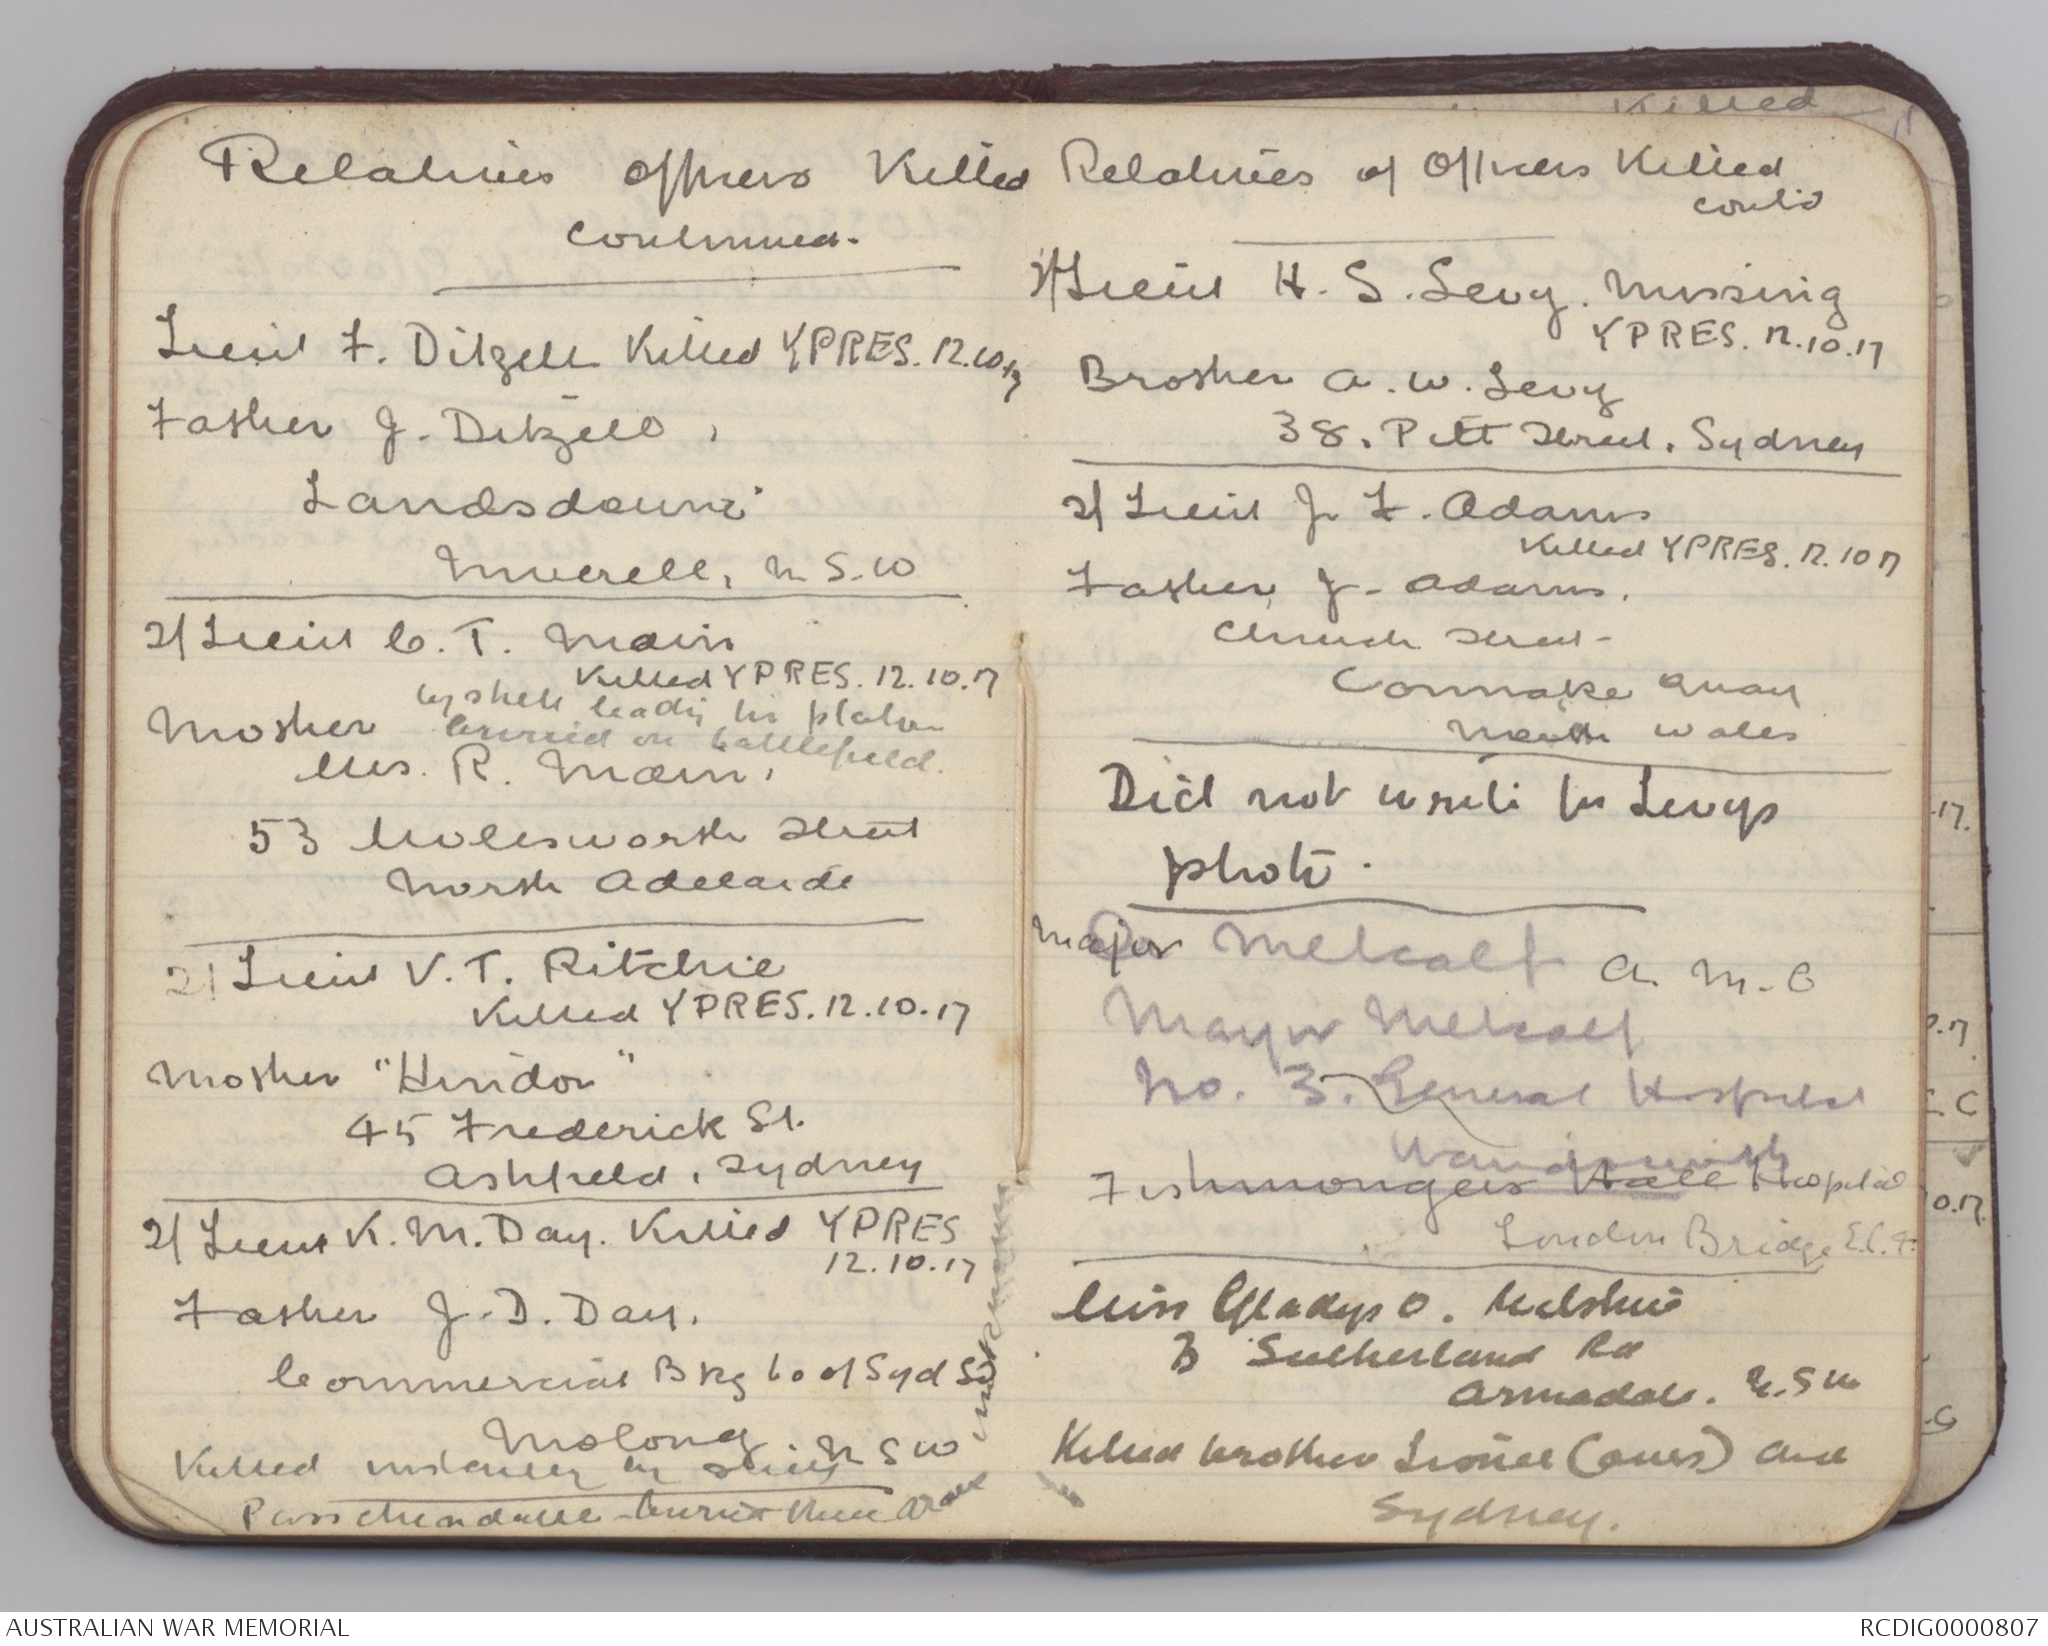 Relatives Officers Killed
Continued.
Lieut F. Ditzell Killed YPRES. 12.10.17
Father J. Ditzell,
Landsdowne
Inverell, N S.W
2/Lieut C. T. Main
Killed YPRES. 12.10.17
by shell leading his platoon
Mother buried on battlefield.
Mrs. R. Main,
53 Molesworth Street
North Adelaide
2/Lieut V. T. Ritchie
Killed YPRES. 12.10.17
Mother "Hindon"
45 Frederick St.
Ashfield, Sydney
2/Lieut K. M. Day. Killed YPRES
12.10.17
Father J. D. Day.
Commercial Bkg Co of Syd
Molong N S W
Killed instantly by shell
Passchendaele buried there
unknown
Relatives of Officers Killed
contd
2/Lieut H. S. Levy. Missing
YPRES. 12.10.17
Brother A. W. Levy
38. Pitt Street. Sydney
2/Lieut J. F. Adams
Killed YPRES. 12.10 17
Father J. Adams.
Church Street
Connahs Quay
North Wales
Did not write for Levys
photo.
Major Metcalf A. M. C
Mayor Metcalf
No. 3. General Hospital
Wandsworth
Fishmongers Hall Hospital
London Bridge E.C.4.
Miss Gladys O.
3 Sutherland Rd
Armadale. N.S W
Killed brother Lionel (ours) and
Sydney.
Killed
.17.
.17
. C
0.17.
AUSTRALIAN WAR MEMORIAL
RCDIG0000807